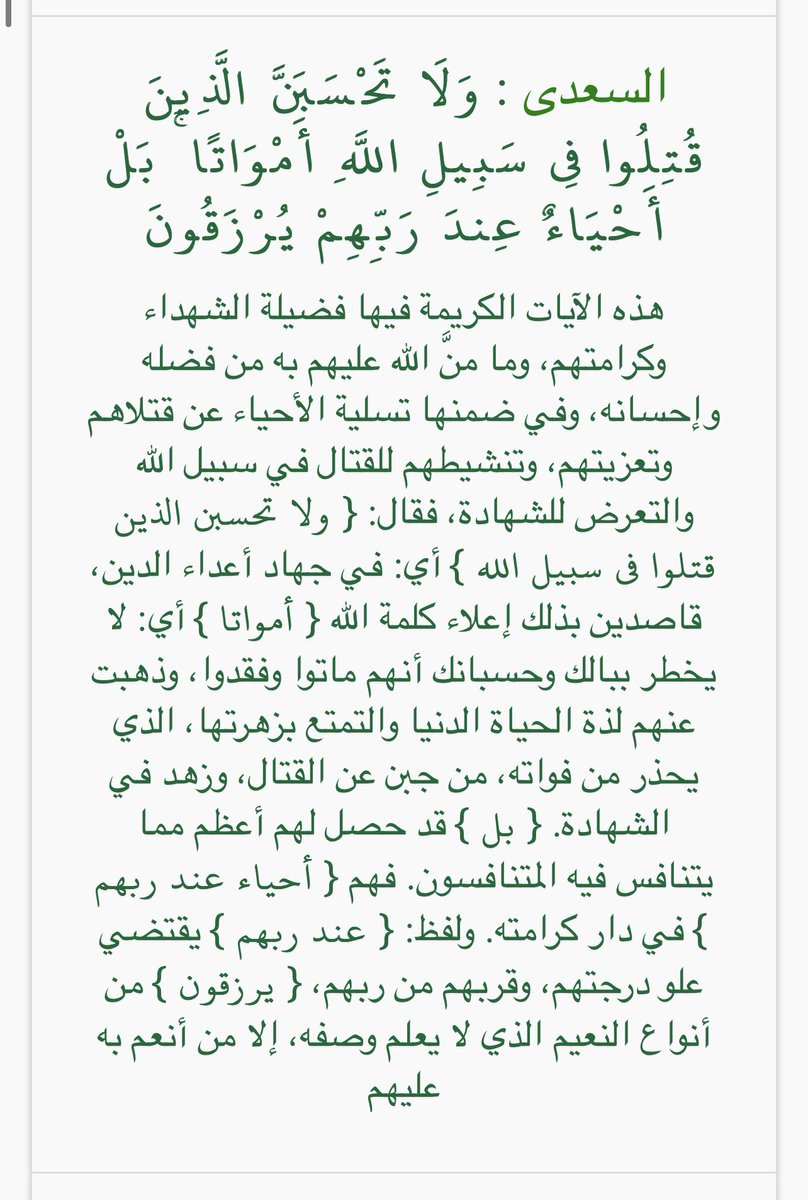 السعدى : وَلَا تَحْسَبَنَّ الَّذِينَ
قُتِلُوا فِى سَبِيلِ اللَّهِ أَمْوَاتًا ۚ بَلْ
أَحْيَاءٌ عِندَ رَبِّهِمْ يُرْزَقُونَ
هذه الآيات الكريمة فيها فضيلة الشهداء
وكرامتهم، وما منَّ الله عليهم به من فضله
وإحسانه، وفي ضمنها تسلية الأحياء عن قتلاهم
وتعزيتهم، وتنشيطهم للقتال في سبيل الله
والتعرض للشهادة، فقال: { ولا تحسبن الذين
قتلوا فى سبيل الله } أي: في جهاد أعداء الدين،
قاصدين بذلك إعلاء كلمة الله { أمواتا } أي: لا
يخطر ببالك وحسبانك أنهم ماتوا وفقدوا، وذهبت
عنهم لذة الحياة الدنيا والتمتع بزهرتها، الذي
يحذر من فواته، من جبن عن القتال، وزهد في
الشهادة. { بل } قد حصل لهم أعظم مما
يتنافس فيه المتنافسون. فهم { أحياء عند ربهم
} في دار كرامته. ولفظ: { عند ربهم } يقتضي
علو درجتهم، وقربهم من ربهم، { يرزقون } من
أنواع النعيم الذي لا يعلم وصفه، إلا من أنعم به
عليهم